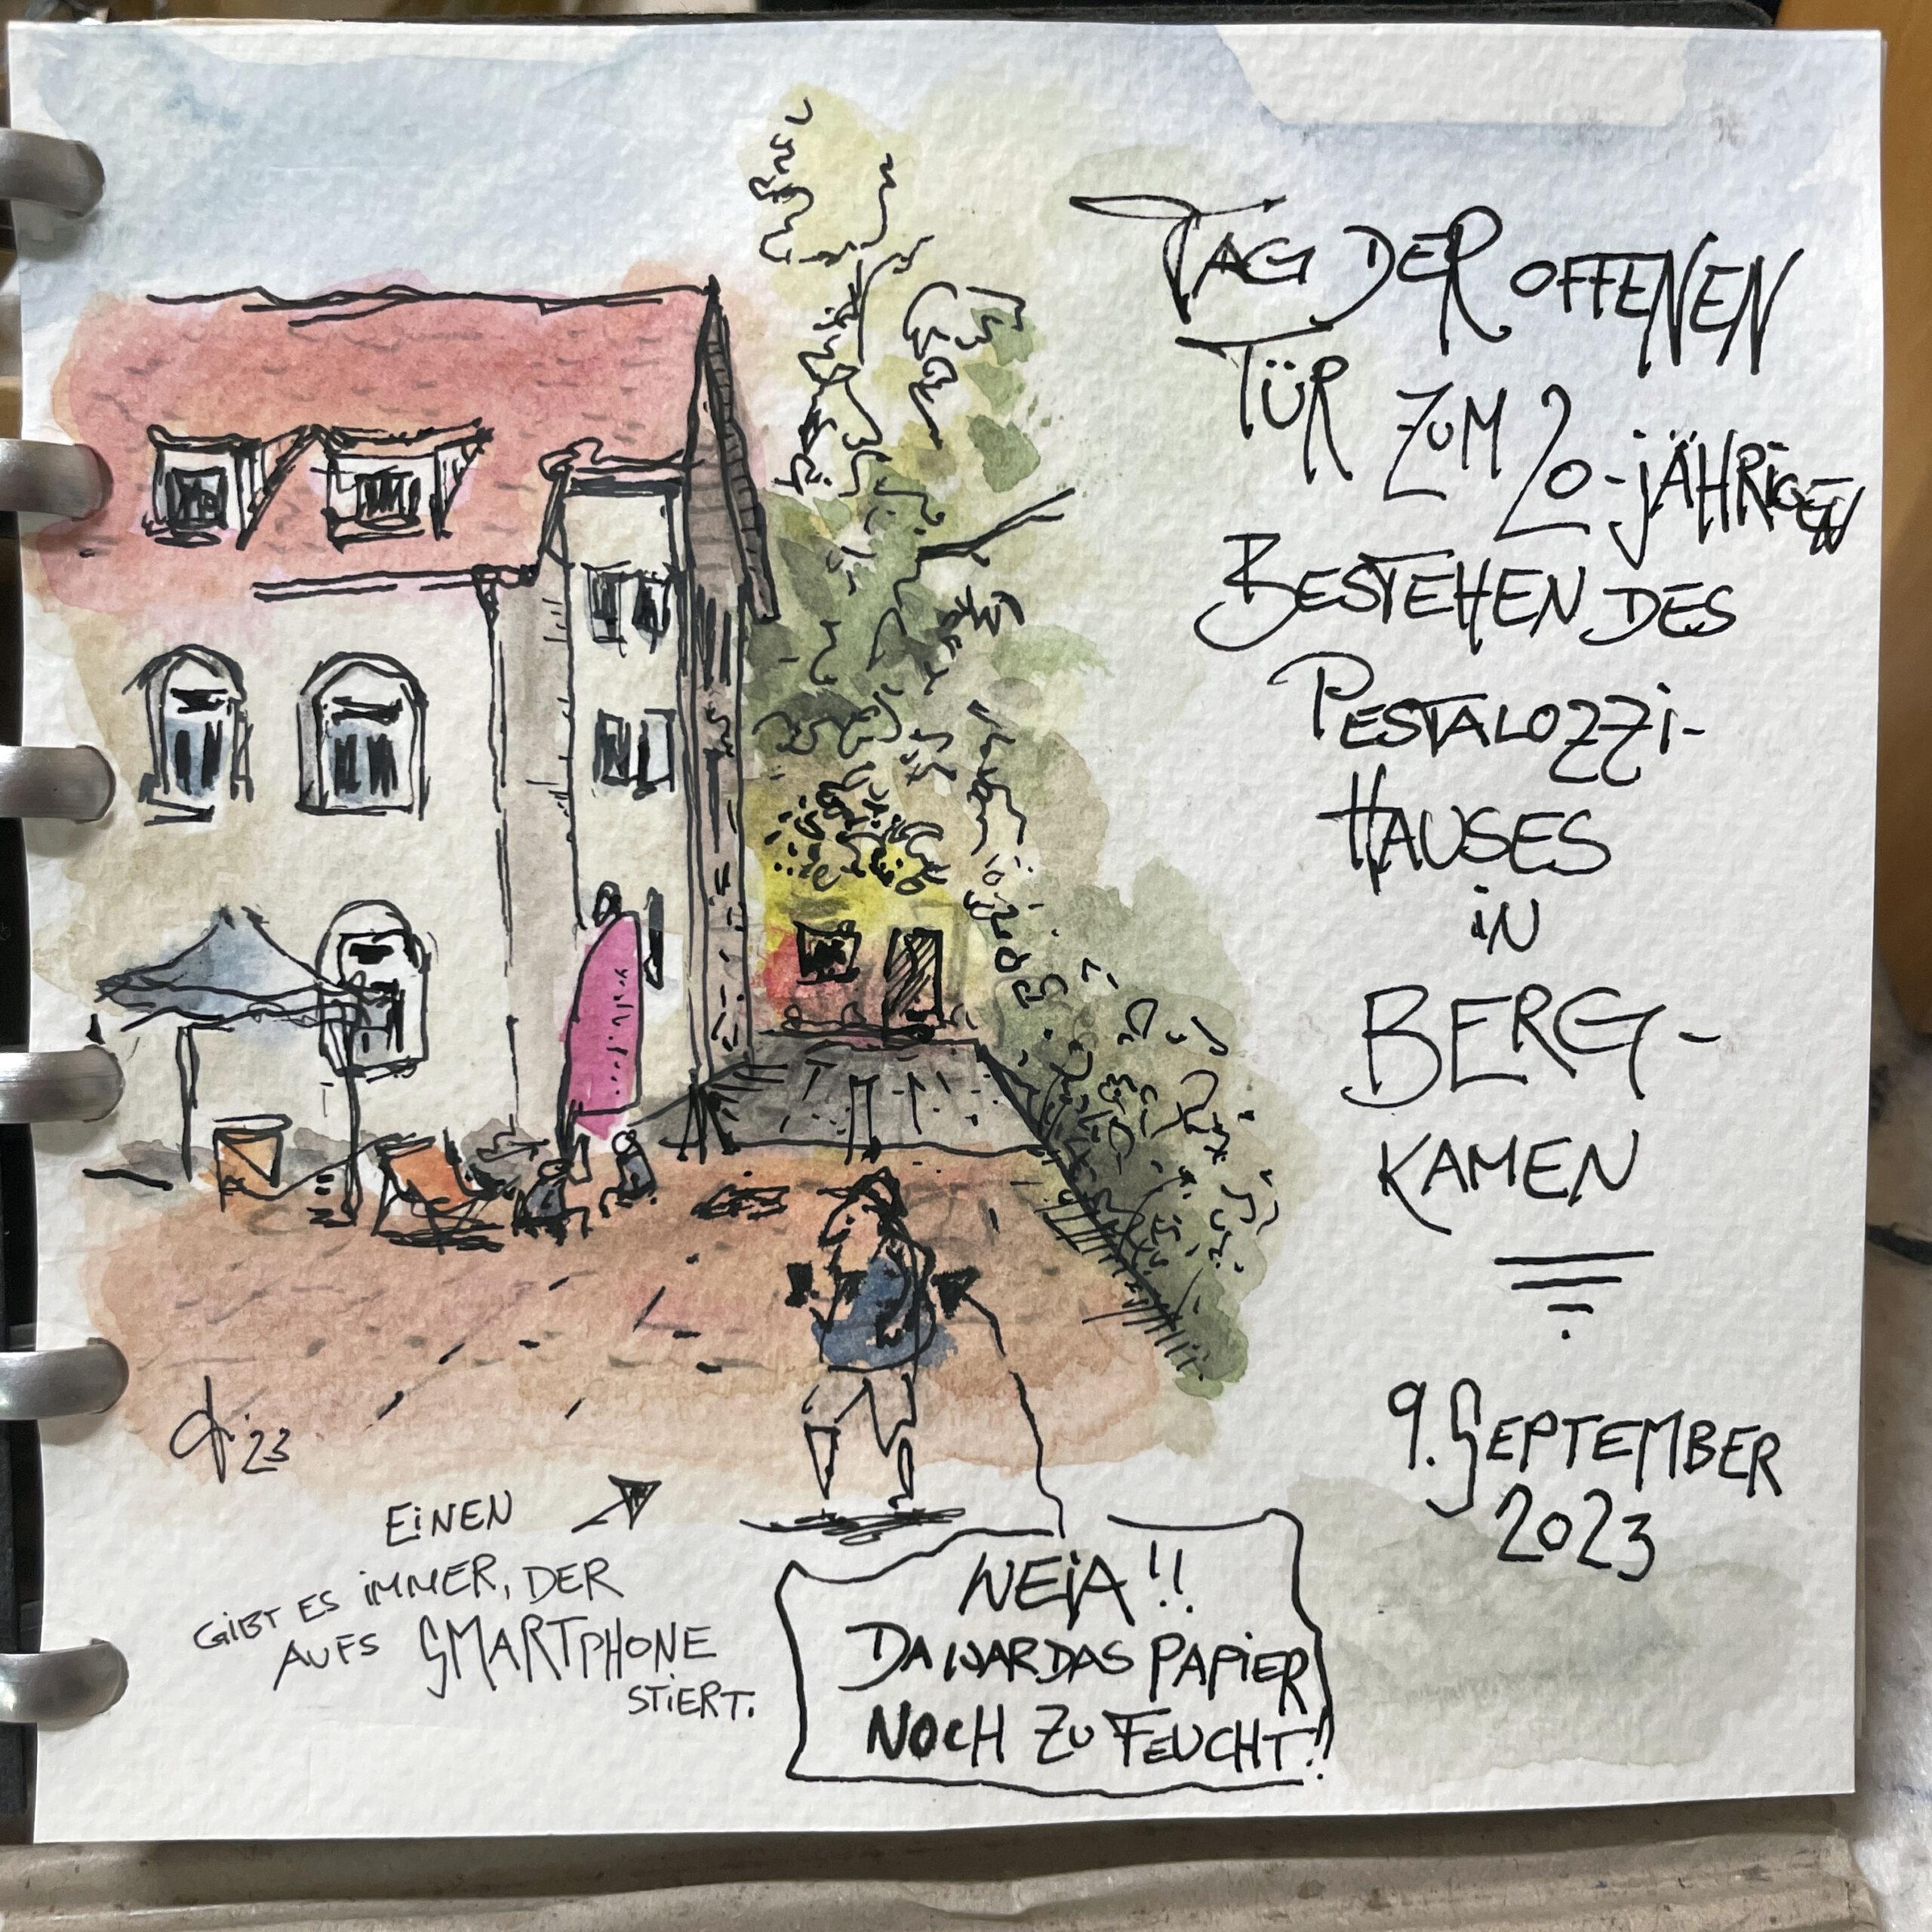 TAG DER OFFENEN
TÜR ZUM 20-JÄHRIGEN
BESTEHEN DES
PESTALOZZI-
HAUSES
IN
BERG-
KAMEN
9. SEPTEMBER
2023
'23
EINEN
GIBT ES IMMER, DER
AUFS SMARTPHONE
STIERT.
NEIA!!
DA WAR DAS PAPIER
NOCH ZU FEUCHT!!